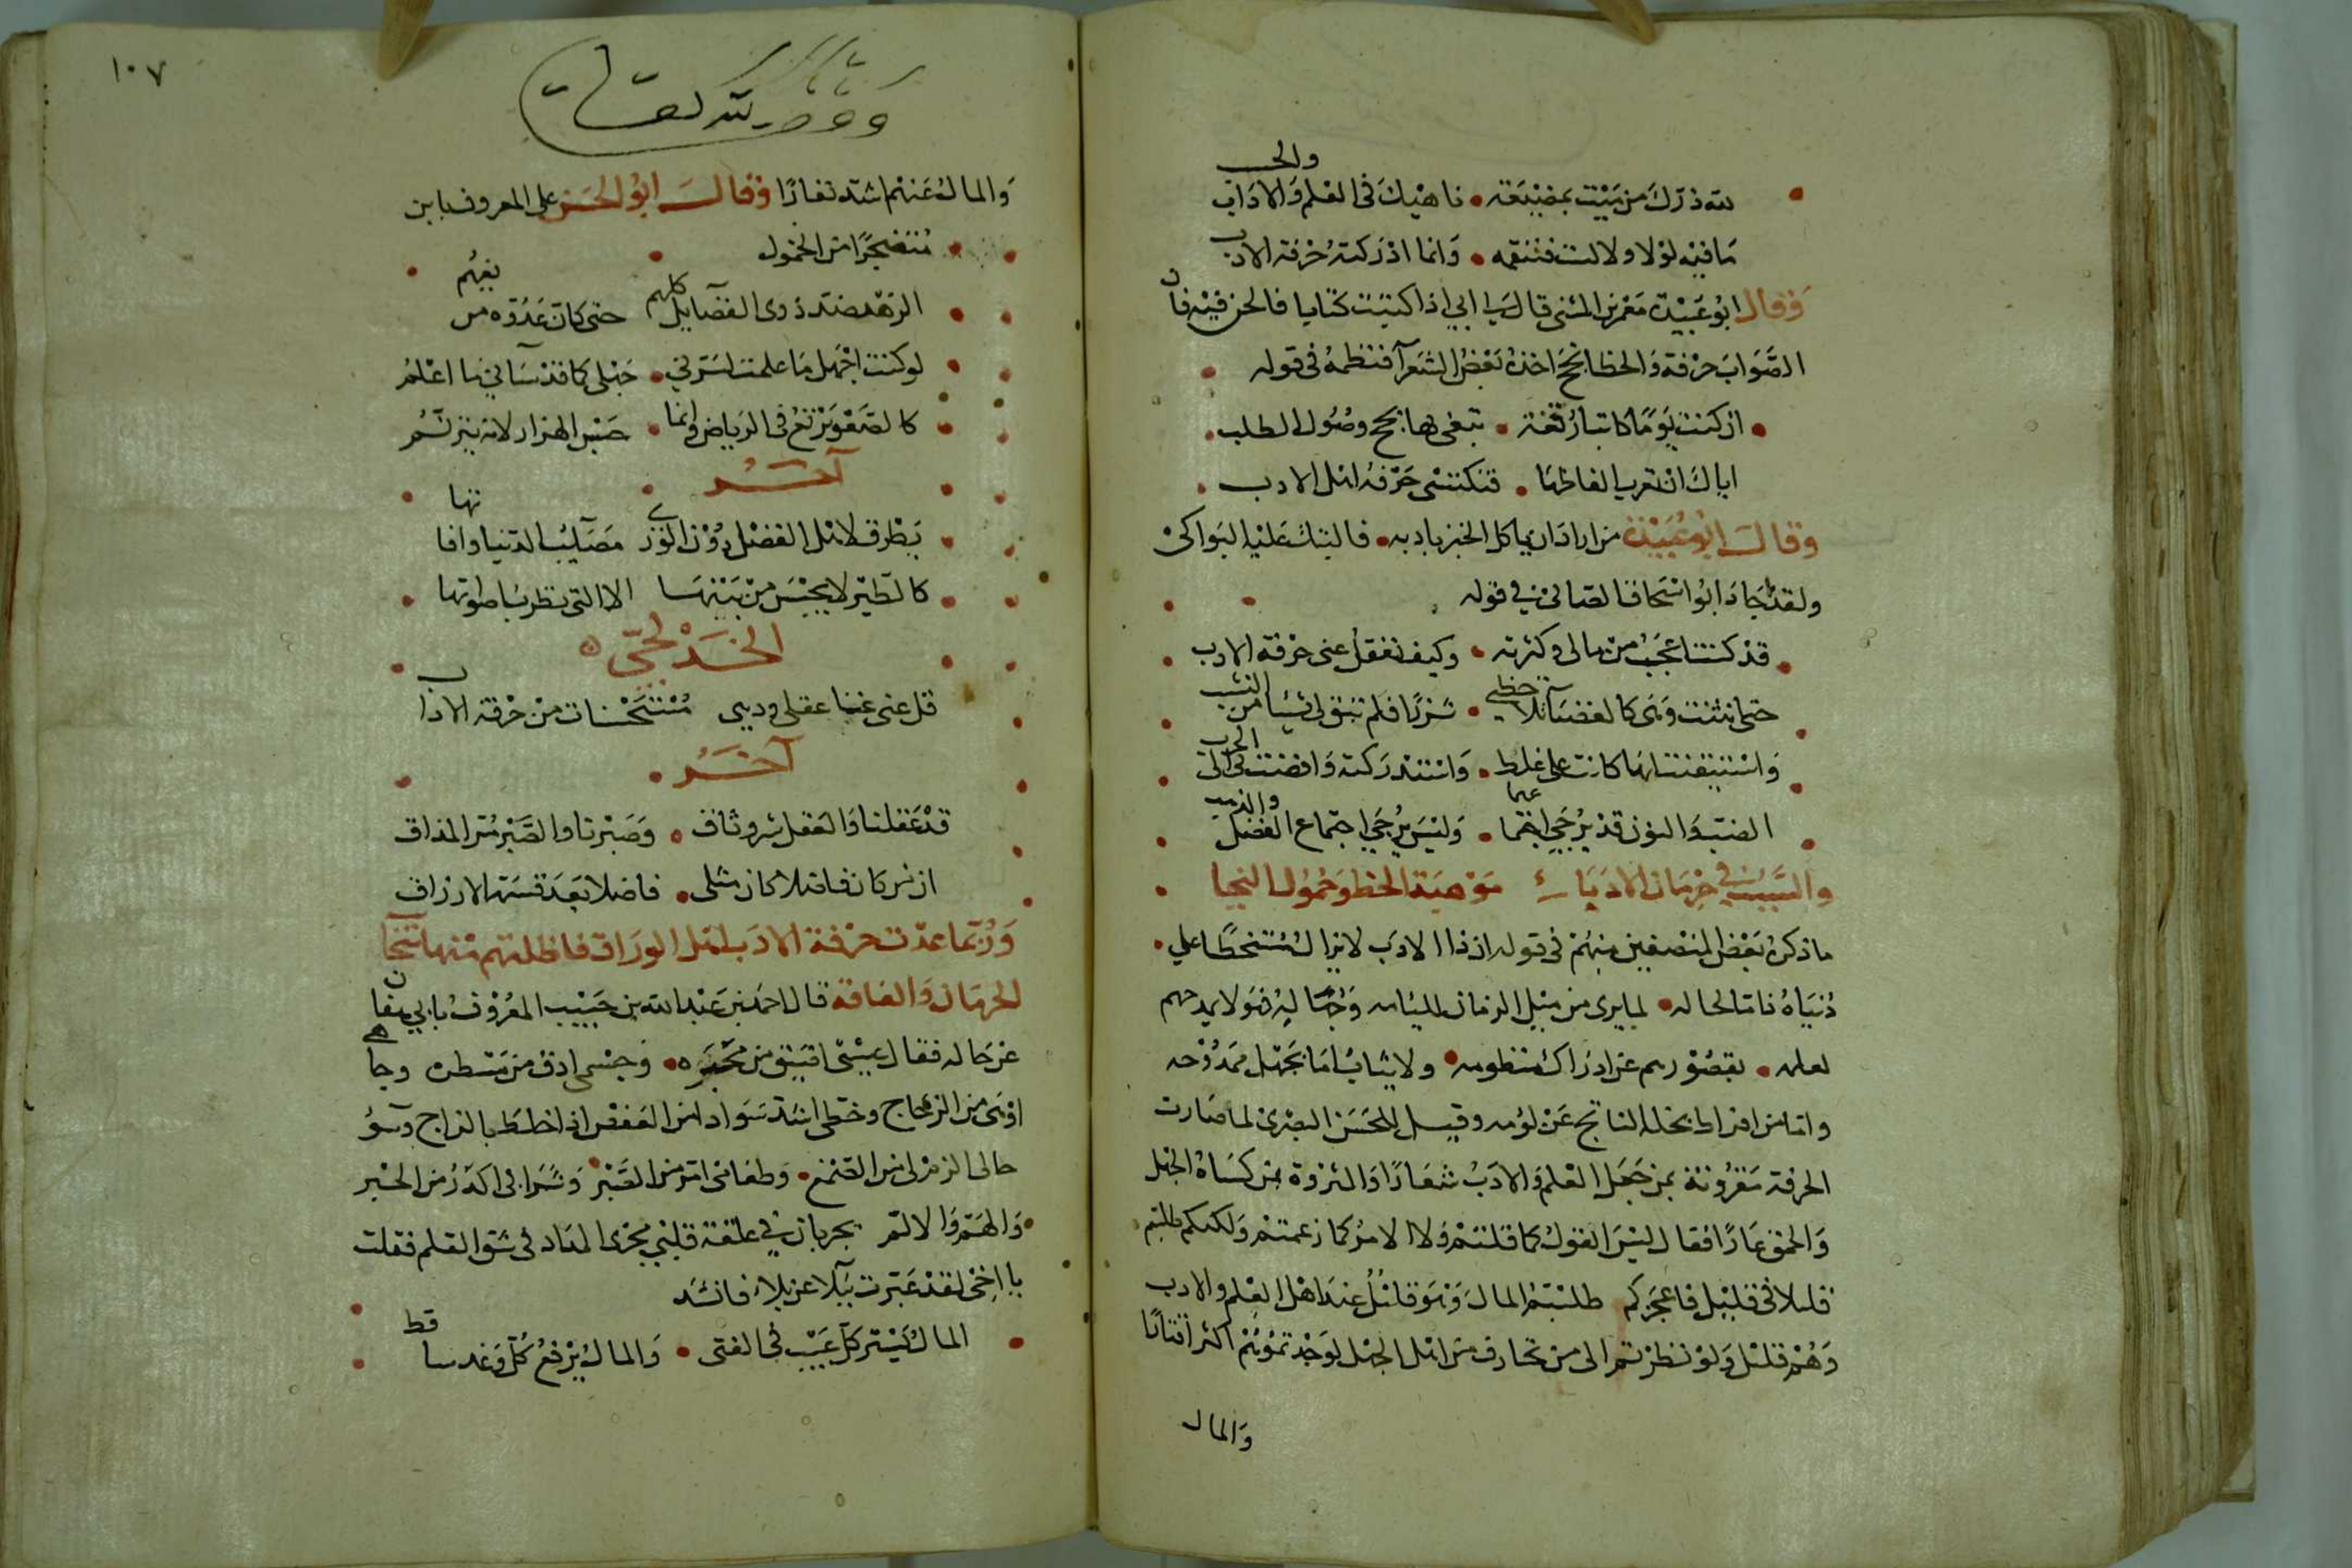 لله درك من ميت بمضيعة • ناهيك في العلم والاداب والحسب
ما فيه لولا ولا ليت فتنقصه • وانما ادركته حرفة الادب
وقال ابو عبيدة معمر بن المثنى قال لي ابي اذا كتبت كتابا فالحن فيه فان
الصواب حرفة والخطا نجح اخذه بعض الشعرآ فنظمه في قوله
ان كنت يوما كاتبا رقعة • تبغي بها نجح وصول الطلب
اياك ان تعرب الفاظها • فتكتسى حرفة اهل الادب
وقال ابو عبيدة من اراد ان ياكل الخبز بادبه • فالتبك عليه البواكى
ولقد اجاد ابو اسحاق الصابى في قوله
قد كنت اعجب من مالى وكثرته • وكيف تغفل عنى حرفة الادب
حتى انثنت وهى كالغضبآ تلاحظني • شزرا فلم تبق لى شيئا من النشب
واستيقنت انها كانت على غلط • واستدركته وافضت بى الى الحرب
الضب والنون قد يرجى اجتماعهما • وليس يرجى اجتماع الفضل والذهب
والسبب في حرمان الادباء موهبة الحظ وخمول النجبا
ما ذكره بعض المنصفين منهم في قوله ان ذا الادب لا يزال متسخطا على
دنياه ذاما لحاله • لما يرى من ميل الزمان للئامه وجهاليه فهو لا يمدحهم
لعلمه • بقصورهم عن ادراك منظومه • ولا يثاب اما بجهل ممدوحه
واما من افراط بخله الناتج عن لؤمه وقيل للحسن البصرى لما صارت
الحرفة مقرونة بمن جعل العلم والادب شعارا والثروة بمن كساه الجهل
والحمق عارا فقال ليس القول كما قلتم ولا الامر كما زعمتم ولكنكم طلبتم
قليلا في قليل فاعجزكم طلبتم المال وهو قليل عند اهل العلم والادب
وهم قليل ولو نظرتم الى من تحارف من اهل الجهل لوجدتموهم اكثر اقتارا
والمال
١٠٧
والمال عنهم اشد نفارا وقال ابو الحسن على المعروف بابن
متضجرا من الخمول
الزهد ضد ذوى الفضايل كلهم • حتى كان عدوه من بينهم
لو كنت اجهل ما علمت لسرني • جهلى كما قد سآني ما اعلم
كالصعو يرتع في الرياض وانما • حبس الهزار لانه يترنم
آخر
يطرق لاهل الفضل دون الورى مصآيب الدنيا وافاتها
كالطير لا يحبس من بينها الا التي تطرب اصواتها
قل غنى غنا عقلى وديى مستحسنات من حرفة الاداب
آخر
قد عقلنا والعقل شر وثاق • وصبرنا والصبر مر المذاق
ان من كان فاضلا كان مثلى • فاضلا بعد قسمة الارزاق
وربما عدت حرفة الادب اهل الوراق فاظلتهم منها
الحرمان والفاقة قال احمد بن عبد الله بن حبيب المعروف بابي هفان
عن حاله فقال عيشى اضيق من محبرة • وجسمى ادق من مسطرة وجاهى
اوهى من الزجاج وحظى اشد سوادا من العفص اذا خلط بالزاج وسوء
حالى الزم لى من الصمغ • وطعامى امر من الصبر • وشرابى اكدر من الحبر
والهم والالم يجريان في علقة قلبى مجرى المداد في شق القلم فقلت
يا اخى لقد عبرت ببلآء عن بلاء فانشد
المال يستر كل عيب في الفتى • والمال يرفع كل وغد ساقط